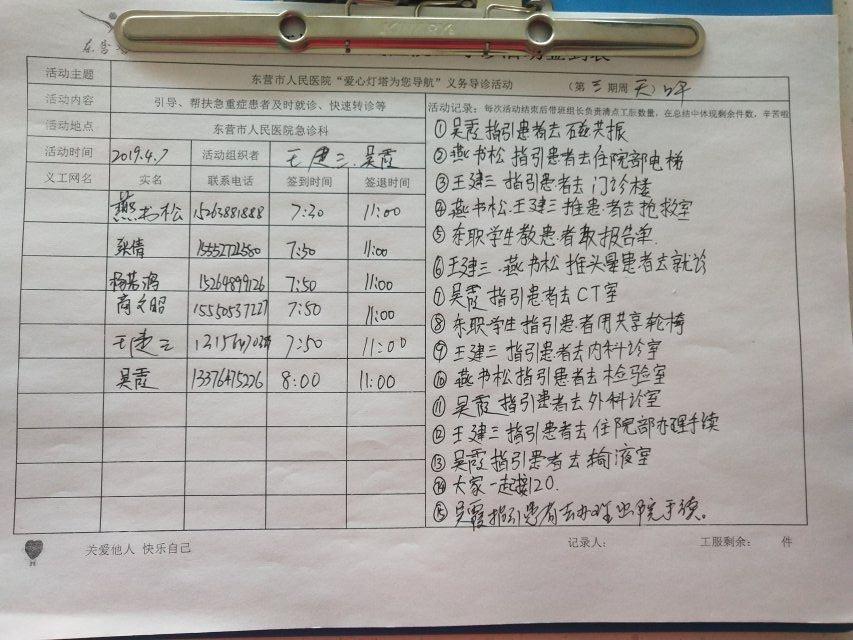 东营
活动主题 东营市人民医院“爱心灯塔为您导航”义务导诊活动 （第三期周天）上午
活动内容 引导、帮扶急重症患者及时就诊、快速转诊等
活动地点 东营市人民医院急诊科
活动时间 2019.4.7 活动组织者 王建三.吴霞
义工网名 实名 联系电话 签到时间 签退时间
燕书松 15263881888 7:30 11:00
张倩 15552772580 7:50 11:00
15264899126 7:50 11:00
15550537227 7:50 11:00
王建三 7:50 11:00
吴霞 13376475226 8:00 11:00
活动记录：每次活动结束后带班组长负责清点工服数量，在总结中体现剩余件数，辛苦啦
①吴霞指引患者去磁共振
②燕书松指引患者去住院部电梯
③王建三指引患者去门诊楼
④燕书松.王建三推患者去抢救室
⑤东职学生教患者取报告单.
⑥王建三.燕书松推头晕患者去就诊
⑦吴霞指引患者去CT室
⑧东职学生指引患者用共享轮椅
⑨王建三指引患者去内科诊室
⑩燕书松指引患者去检验室
⑪吴霞指引患者去外科诊室
⑫王建三指引患者去住院部办理手续
⑬吴霞指引患者去输液室
⑭大家一起接120.
⑮吴霞指引患者去办理出院手续。
关爱他人 快乐自己 记录人： 工服剩余： 件